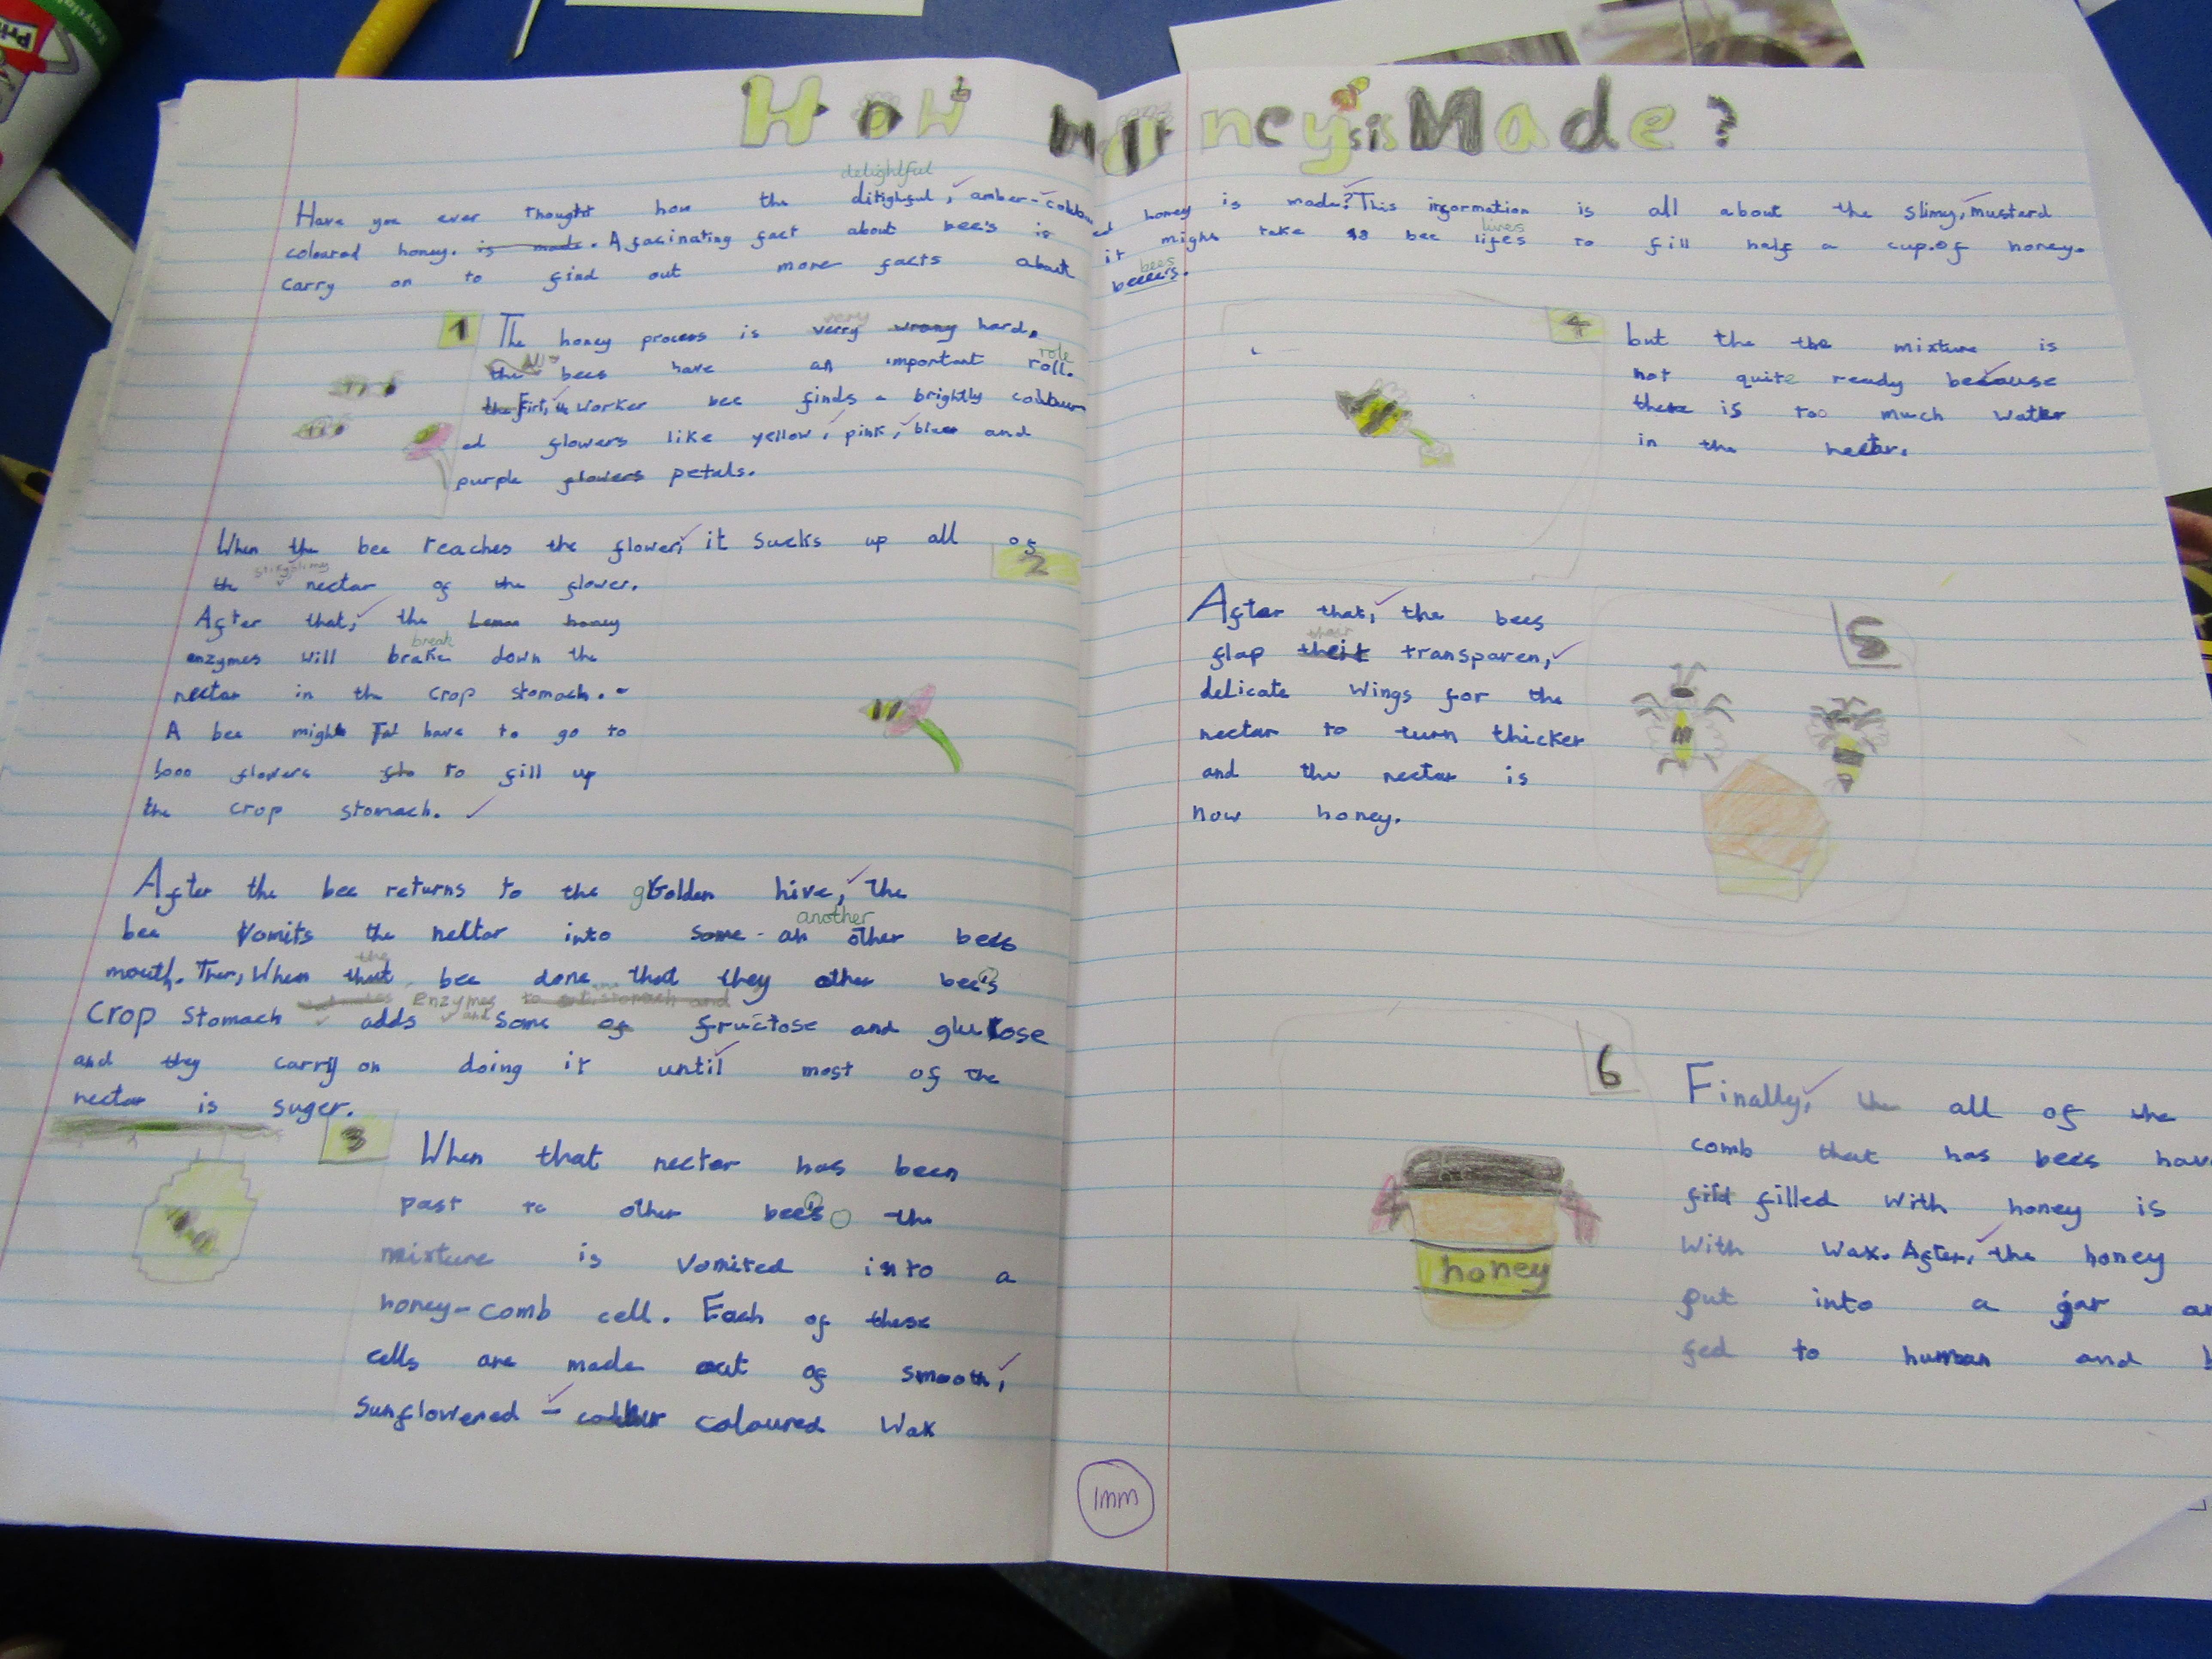 How Honey is Made?
delightful
Have you ever thought how the ditighful, amber-colour ed honey is made? This information is all about the slimy, mustard
coloured honey. is made. A facinating fact about bee's is it might take 18 bee lifes to fill half a cup of honey.
lives
carry on to find out more facts about beeee's.
bees
1
The honey process is verry wrong hard.
very
the bees have an important roll.
role
the First, the worker bee finds a brightly colour
ed flowers like yellow, pink, blue and
purple flowers petals.
When the bee reaches the flower, it sucks up all of
2
slimy
the nectar of the flower.
After that, the honey
enzymes will brake down the
break
nectar in the crop stomach.
A bee might have to go to
1000 flowers to fill up
the crop stomach.
After the bee returns to the golden hive, the
bee vomits the nectar into some an other bees
another
mouth. Then, When that bee done that they other bee's
the
enzymes to stomach and
Crop stomach adds and some of fructose and glucose
and they carry on doing it until most of the
nectar is suger.
3
When that necter has been
past to other bee's the
mixture is vomited into a
honey-comb cell. Each of these
cells are made out of smooth,
sunflowered - colour coloured wax
4
but the the mixture is
not quite ready because
there is too much water
in the nectar.
5
After that, the bees
flap their transparen,
their
delicate wings for the
nectar to turn thicker
and the nectar is
now honey.
6
honey
Finally, the all of the
comb that has bees hav
filld filled with honey is
with wax. After, the honey
put into a jar
fed to human and
1mm
Prit